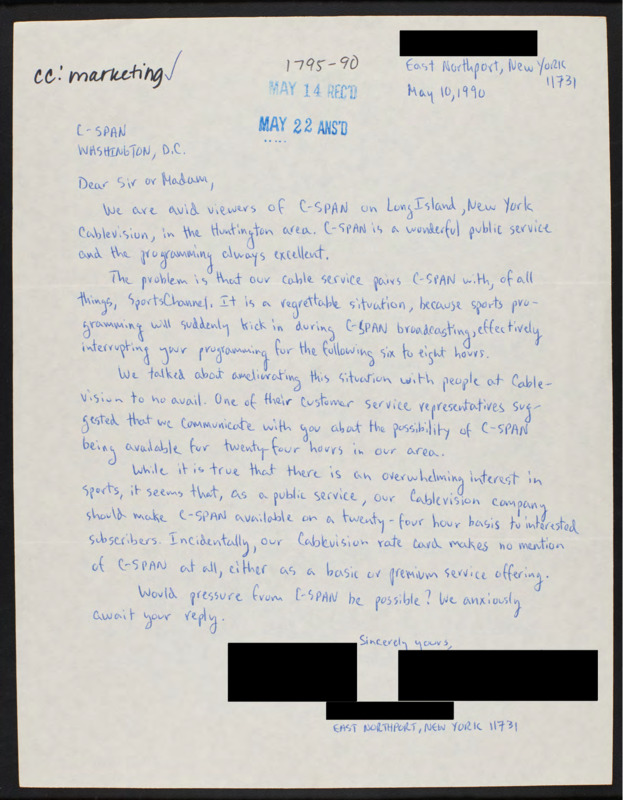 cc: marketing✓
1795-90
MAY 14 REC'D
MAY 22 ANS'D
East Northport, New York
11731
May 10, 1990
C-SPAN
WASHINGTON, D.C.
Dear Sir or Madam,
We are avid viewers of C-SPAN on Long Island, New York
Cablevision, in the Huntington area. C-SPAN is a wonderful public service
and the programming always excellent.
The problem is that our cable service pairs C-SPAN with, of all
things, SportsChannel. It is a regrettable situation, because sports pro-
gramming will suddenly kick in during C-SPAN broadcasting, effectively
interrupting your programming for the following six to eight hours.
We talked about ameliorating this situation with people at Cable-
vision to no avail. One of their customer service representatives sug-
gested that we communicate with you about the possibility of C-SPAN
being available for twenty-four hours in our area.
While it is true that there is an overwhelming interest in
sports, it seems that, as a public service, our Cablevision company
should make C-SPAN available on a twenty-four hour basis to interested
subscribers. Incidentally, our Cablevision rate card makes no mention
of C-SPAN at all, either as a basic or premium service offering.
Would pressure from C-SPAN be possible? We anxiously
await your reply.
Sincerely yours,
EAST NORTHPORT, NEW YORK 11731